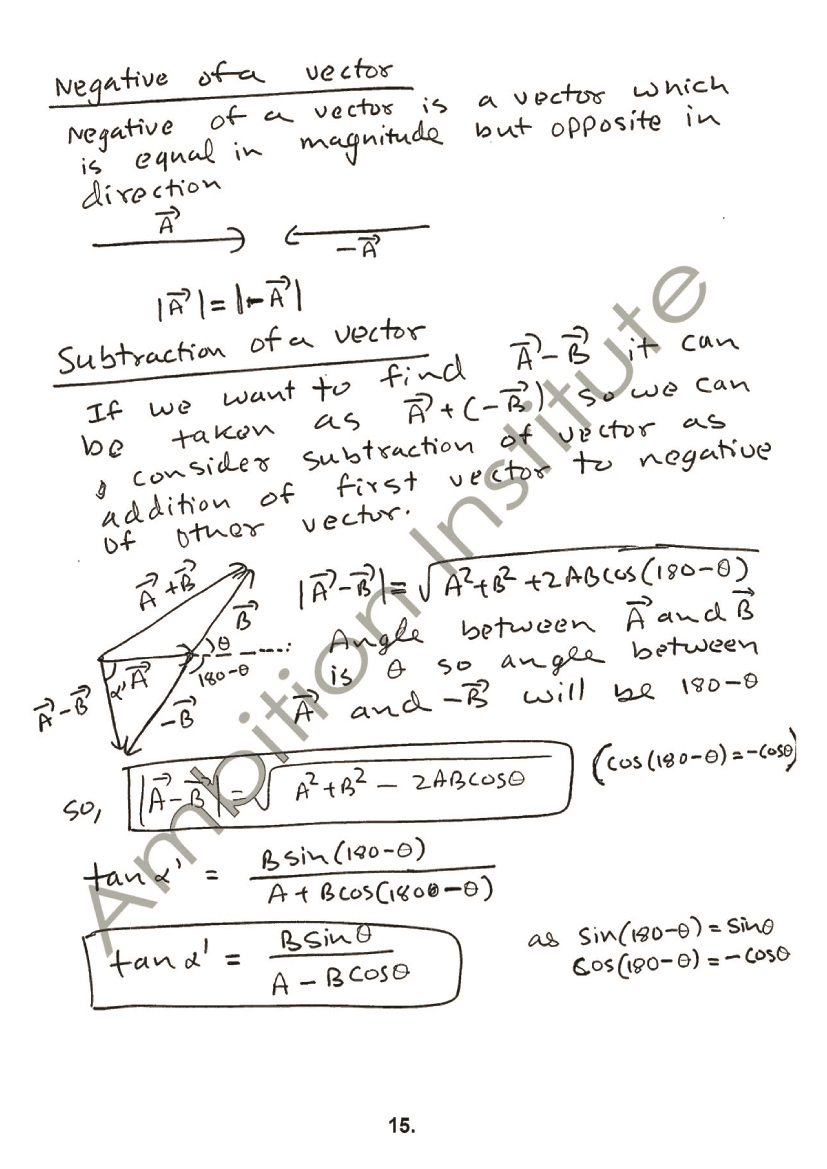 Negative of a vector
Negative of a vector is a vector which
is equal in magnitude but opposite in
direction
A⃗
-A⃗
|A⃗| = |-A⃗|
Subtraction of a vector
If we want to find A⃗-B⃗ it can
be taken as A⃗+(-B⃗) so we can
consider subtraction of vector as
addition of first vector to negative
of other vector.
A⃗+B⃗
B⃗
θ
A⃗
α'
180-θ
A⃗-B⃗
-B⃗
|A⃗-B⃗| = √(A²+B²+2ABcos(180-θ))
Angle between A⃗ and B⃗
is θ so angle between
A⃗ and -B⃗ will be 180-θ
so, |A⃗-B⃗| = √(A²+B² - 2ABcosθ) (cos(180-θ)=-cosθ)
tan α' = Bsin(180-θ) / A+Bcos(180-θ)
tan α' = Bsinθ / A-Bcosθ
as sin(180-θ)=sinθ
cos(180-θ)=-cosθ
Ambition Institute
15.